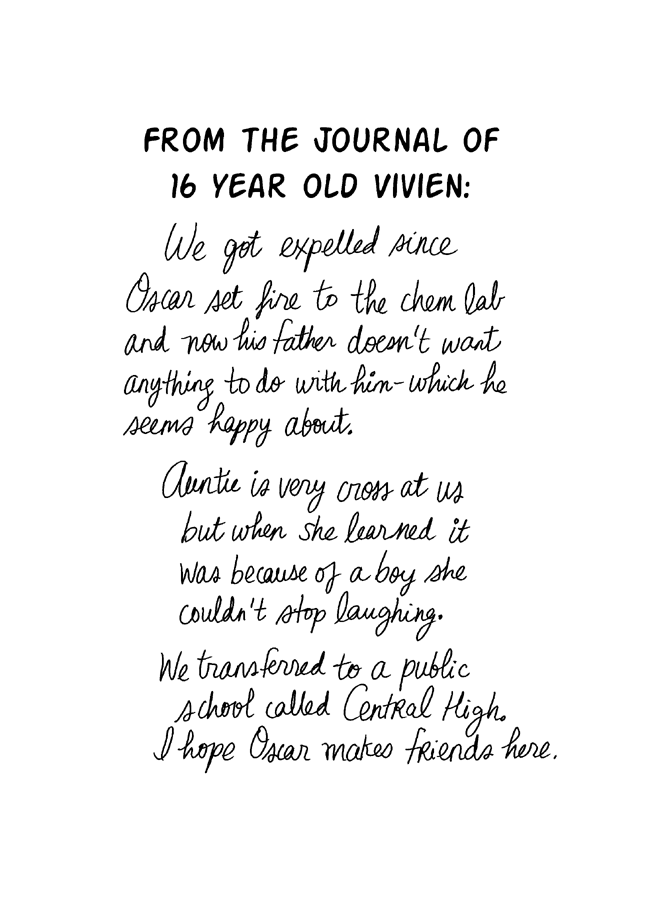 FROM THE JOURNAL OF
16 YEAR OLD VIVIEN:
We got expelled since
Oscar set fire to the chem lab
and now his father doesn't want
anything to do with him-which he
seems happy about.
Auntie is very cross at us
but when she learned it
was because of a boy she
couldn't stop laughing.
We transferred to a public
school called Central High.
I hope Oscar makes friends here.